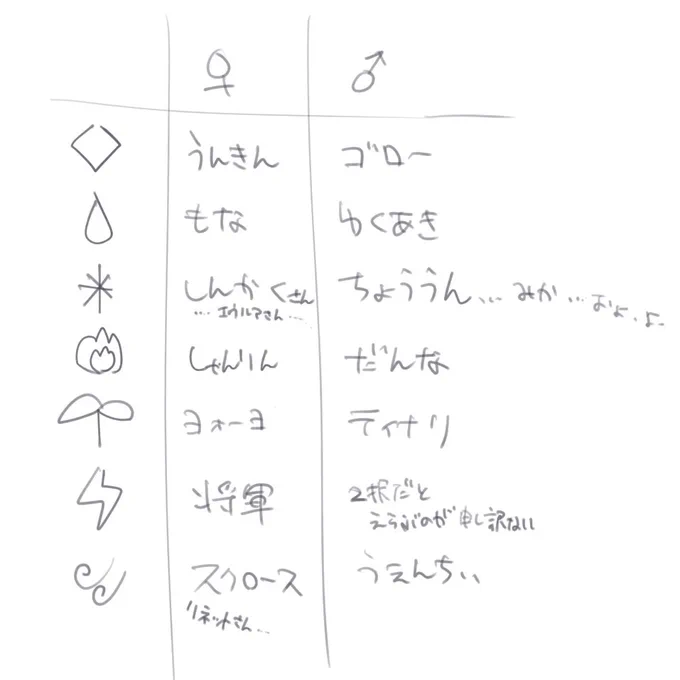 ♀ ♂
うんきん ゴロー
もな ゆくあき
しんかくさん ちょううん... みか...
... エウルアさん...
しゃんりん だんな
ヨォーヨ ティナリ
将軍 2択だと
えらぶのが申し訳ない
スクロース うぇんちぃ
リネットさん...